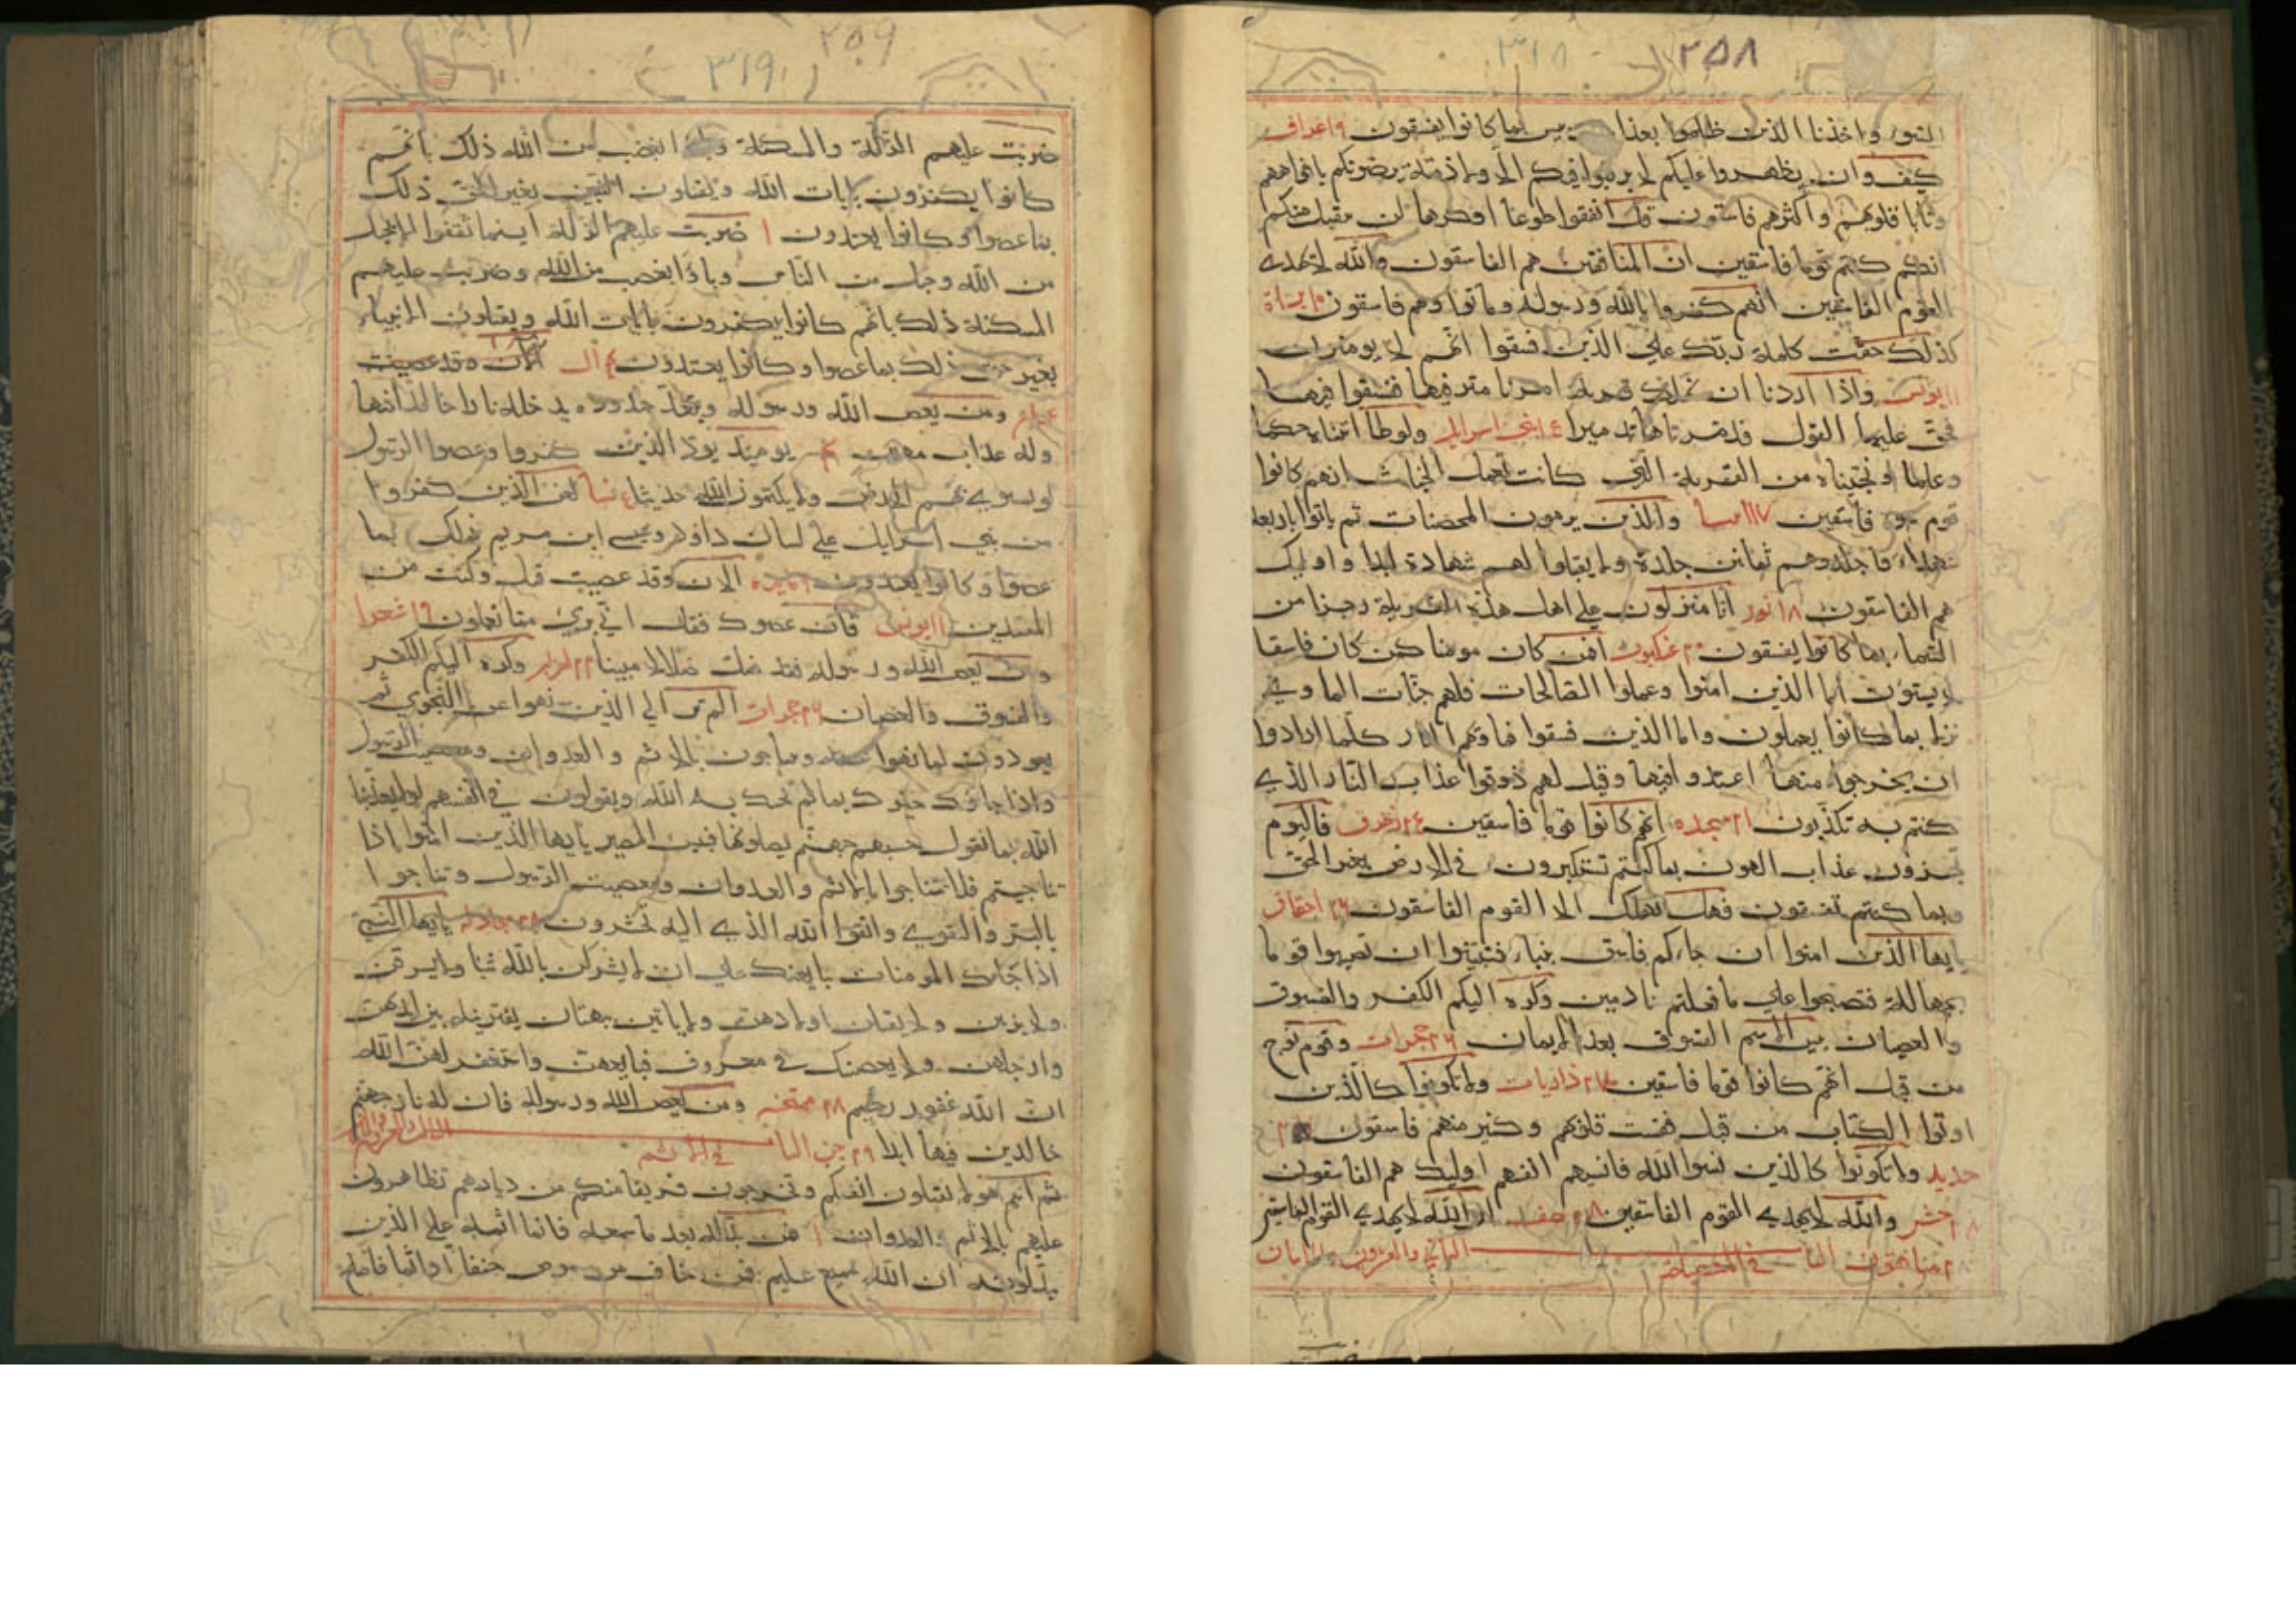 ٢٥٨
٣١٨
السوء واخذنا الذين ظلموا بعذاب بما كانوا يفسقون ٩ اعراف
كيف وان يظهروا عليكم لا يرقبوا فيكم الا ولا ذمة يرضونكم بافواههم
وتابا قلوبهم واكثرهم فاسقون قل انفقوا طوعا او كرها لن يتقبل منكم
انكم كنتم قوما فاسقين ان المنافقين هم الفاسقون والله لا يهدي
القوم الفاسقين انهم كفروا بالله ورسوله وماتوا وهم فاسقون ١٠ براة
كذلك حقت كلمة ربك علي الذين فسقوا انهم لا يومنون
١١ يونس واذا اردنا ان نهلك قرية امرنا مترفيها ففسقوا فيها
فحق عليها القول فدمرناها تدميرا بني اسرايل ولوطا اتيناه حكما
وعلما ونجيناه من القرية التي كانت تعمل الخبائث انهم كانوا
قوم سوء فاسقين ١٧ انبيا والذين يرمون المحصنات ثم لم ياتوا باربعة
شهداء فاجلدوهم ثمانين جلدة ولا تقبلوا لهم شهادة ابدا واوليك
هم الفاسقون ١٨ نور انا منزلون علي اهل هذه القرية رجزا من
السماء بما كانوا يفسقون ٢٠ عنكبوت افمن كان مومنا كمن كان فاسقا
لا يستوون اما الذين امنوا وعملوا الصالحات فلهم جنات الماوي
نزلا بما كانوا يعملون واما الذين فسقوا فماويهم النار كلما ارادوا
ان يخرجوا منها اعيدوا فيها وقيل لهم ذوقوا عذاب النار الذي
كنتم به تكذبون ٢١ سجده انهم كانوا قوما فاسقين ٢٤ زخرف فاليوم
تجزون عذاب الهون بما كنتم تستكبرون في الارض بغير الحق
وبما كنتم تفسقون فهل يهلك الا القوم الفاسقون ٢٦ احقاف
يايها الذين امنوا ان جاءكم فاسق بنباء فتبينوا ان تصيبوا قوما
بجهالة فتصبحوا علي ما فعلتم نادمين وكره اليكم الكفر والفسوق
والعصيان بيس الاسم الفسوق بعد الايمان ٢٦ حجرات وقوم نوح
من قبل انهم كانوا قوما فاسقين ذاريات ولا تكونوا كالذين
اوتوا الكتاب من قبل فقست قلوبهم وكثير منهم فاسقون
حديد ولا تكونوا كالذين نسوا الله فانسيهم انفسهم اوليك هم الفاسقون
٢٨ حشر والله لا يهدي القوم الفاسقين ٢٨ صف ان الله لا يهدي القوم الفاسقين
٢٨ منافقون الثاني والعشرون
٢٥٩
٣١٩
ضربت عليهم الذلة والمسكنة وباءو بغضب من الله ذلك بانهم
كانوا يكفرون بايات الله ويقتلون النبيين بغير الحق ذلك
بما عصوا وكانوا يعتدون ١ ضربت عليهم الذلة اينما ثقفوا الا بحبل
من الله وحبل من الناس وباءوا بغضب من الله وضربت عليهم
المسكنة ذلك بانهم كانوا يكفرون بايات الله ويقتلون الانبياء
بغير حق ذلك بما عصوا وكانوا يعتدون ٤ ال الان وقد عصيت
عمران ومن يعص الله ورسوله ويتعد حدوده يدخله نارا خالدا فيها
وله عذاب مهين ٤ يوميذ يود الذين كفروا وعصوا الرسول
لو تسوي بهم الارض ولا يكتمون الله حديثا نسا لعن الذين كفروا
من بني اسرايل علي لسان داود وعيسي ابن مريم ذلك بما
عصوا وكانوا يعتدون مايده الان وقد عصيت قبل وكنت من
المفسدين ١١ يونس فان عصوك فقل اني بري مما تعملون ١٩ شعرا
ومن يعص الله ورسوله فقد ضل ضلالا مبينا ٢٢ احزاب وكره اليكم الكفر
والفسوق والعصيان ٢٦ حجرات الم تر الي الذين نهوا عن النجوي ثم
يعودون لما نهوا عنه ويتناجون بالاثم والعدوان ومعصيت الرسول
واذا جاؤك حيوك بما لم يحيك به الله ويقولون في انفسهم لولا يعذبنا
الله بما نقول حسبهم جهنم يصلونها فبيس المصير يايها الذين امنوا اذا
تناجيتم فلا تتناجوا بالاثم والعدوان ومعصيت الرسول وتناجوا
بالبر والتقوي واتقوا الله الذي اليه تحشرون ٢٨ مجادله يايها النبي
اذا جاءك المومنات يبايعنك علي ان لا يشركن بالله شيا ولا يسرقن
ولا يزنين ولا يقتلن اولادهن ولا ياتين ببهتان يفترينه بين ايديهن
وارجلهن ولا يعصينك في معروف فبايعهن واستغفر لهن الله
ان الله غفور رحيم ٢٨ ممتحنه ومن يعص الله ورسوله فان له نار جهنم
خالدين فيها ابدا ٢٩ جن في الاثم
ثم انتم هولاء تقتلون انفسكم وتخرجون فريقا منكم من ديارهم تظاهرون
عليهم بالاثم والعدوان ١ فمن بدله بعد ما سمعه فانما اثمه علي الذين
يبدلونه ان الله سميع عليم فمن خاف من موص جنفا او اثما فاصلح